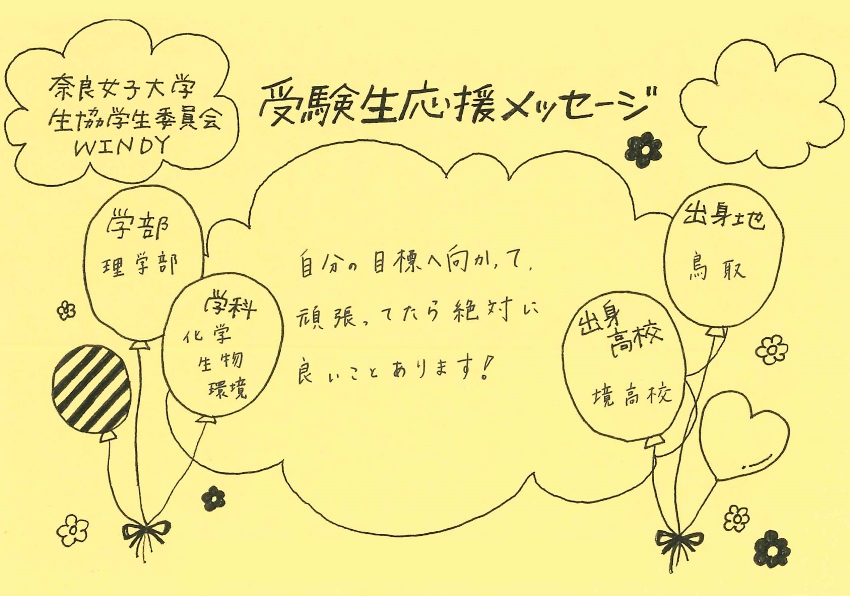 奈良女子大学
生協学生委員会
WINDY
受験生応援メッセージ
学部
理学部
学科
化学
生物
環境
自分の目標へ向かって、
頑張ってたら絶対に
良いことあります!
出身地
鳥取
出身
高校
境高校